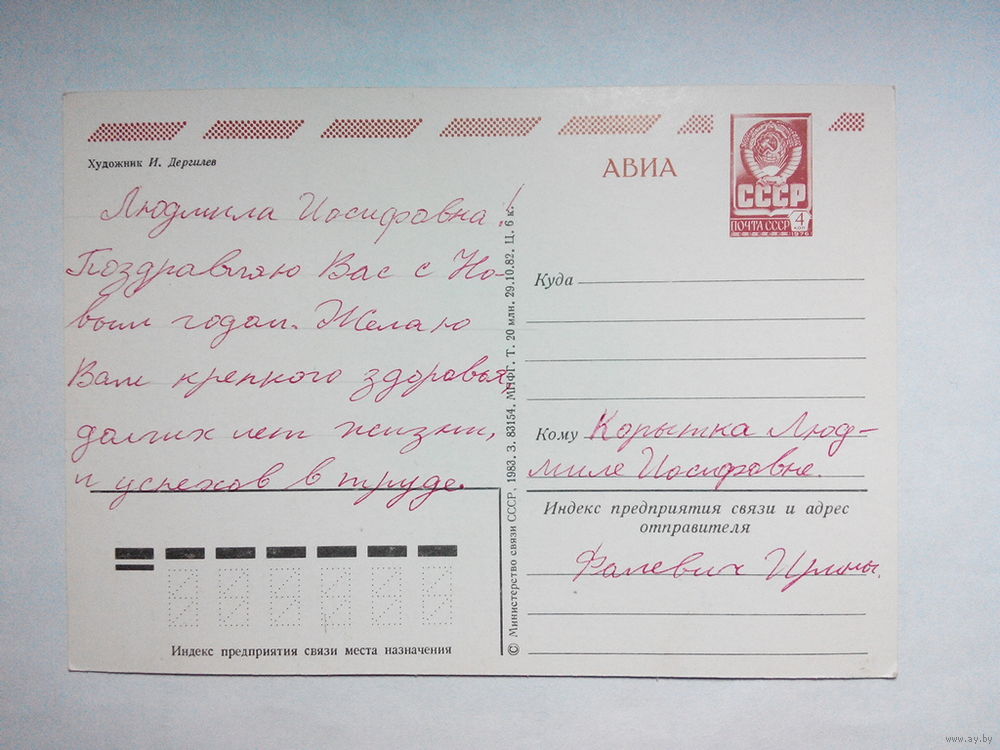 Художник И. Дергилев
АВИА
СССР
ПОЧТА СССР
4
КОП
1976
Людмила Иосифовна!
Поздравляю Вас с Но-
вым годом. Желаю
Вам крепкого здоровья,
долгих лет жизни,
и успехов в труде.
Индекс предприятия связи места назначения
© Министерство связи СССР, 1983. З. 83154. МПФГ. Т. 20 млн. 29.10.82. Ц. 6 к.
Куда
Кому Корытка Люд-
миле Иосифовне.
Индекс предприятия связи и адрес
отправителя
Фалевич Ирины.
www.ay.by